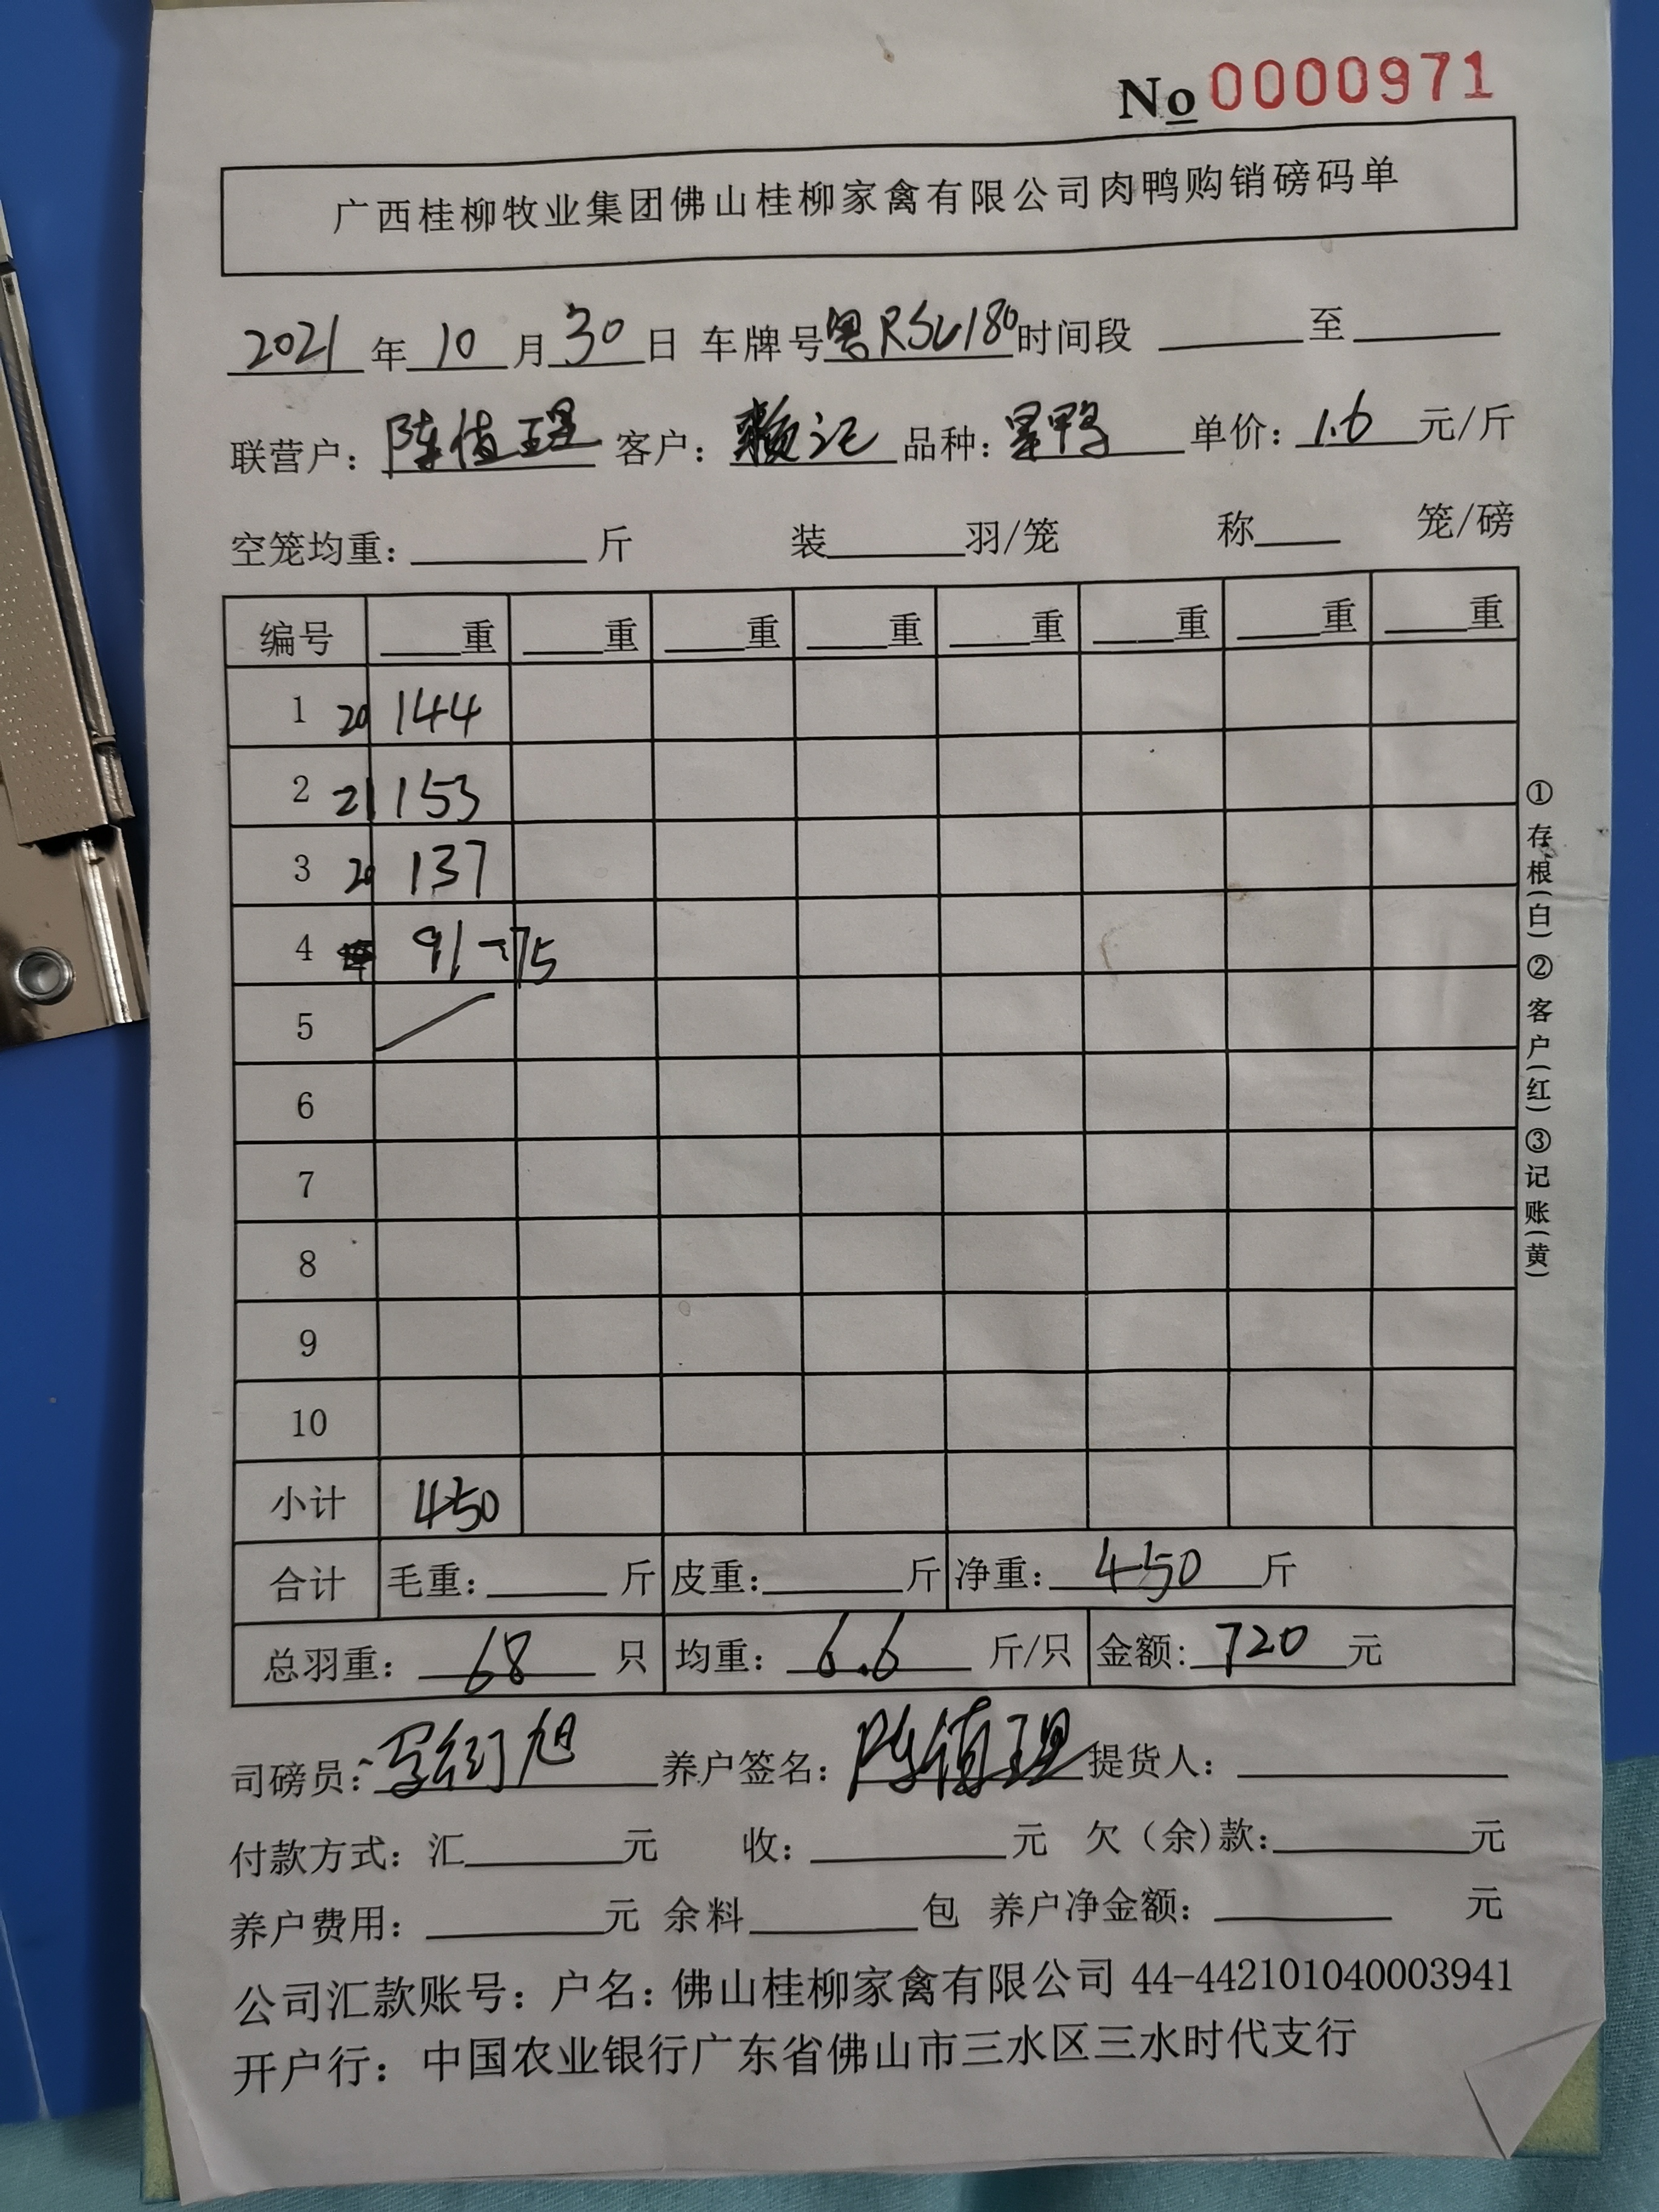 No 0000971
广西桂柳牧业集团佛山桂柳家禽有限公司肉鸭购销磅码单
2021 年 10 月 30 日 车牌号 粤RSU180 时间段 至
联营户: 陈值 客户: 赖记 品种: 鸭 单价: 1.6 元/斤
空笼均重: 斤 装 羽/笼 称 笼/磅
编号 重 重 重 重 重 重 重 重
1 20 144
2 21 153
3 20 137
4 91-75
5
6
7
8
9
10
小计 450
合计 毛重: 斤 皮重: 斤 净重: 450 斤
总羽重: 68 只 均重: 6.6 斤/只 金额: 720 元
司磅员: 旭 养户签名: 陈值 提货人:
付款方式: 汇 元 收: 元 欠(余)款: 元
养户费用: 元 余料 包 养户净金额: 元
公司汇款账号: 户名: 佛山桂柳家禽有限公司 44-442101040003941
开户行: 中国农业银行广东省佛山市三水区三水时代支行
①存根(白)②客户(红)③记账(黄)